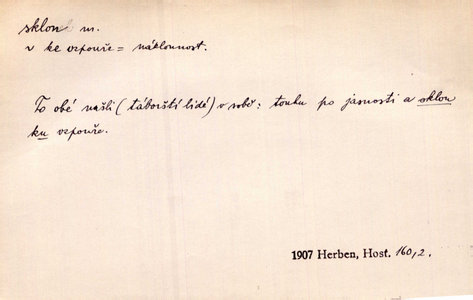 sklon m.
v ke vzpouře = náklonnost.
To obé našli (táborští lidé) v sobě: touhu po jasnosti a sklon
ku vzpouře.
1907 Herben, Host. 160,2.